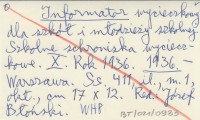 Informator wycieczkowy
dla szkół i młodzieży szkolnej
Szkolne schroniska wyciecz-
kowe. X. Rok 1936. 1936. –
Warszawa. Ss. 411 il., m. 1,
okł., cm 17 X 12. Red. Józef
Błoński. WHP